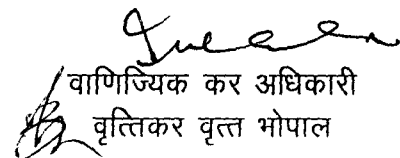 वाणिज्यिक कर अधिकारी
वृत्तिकर वृत्त भोपाल